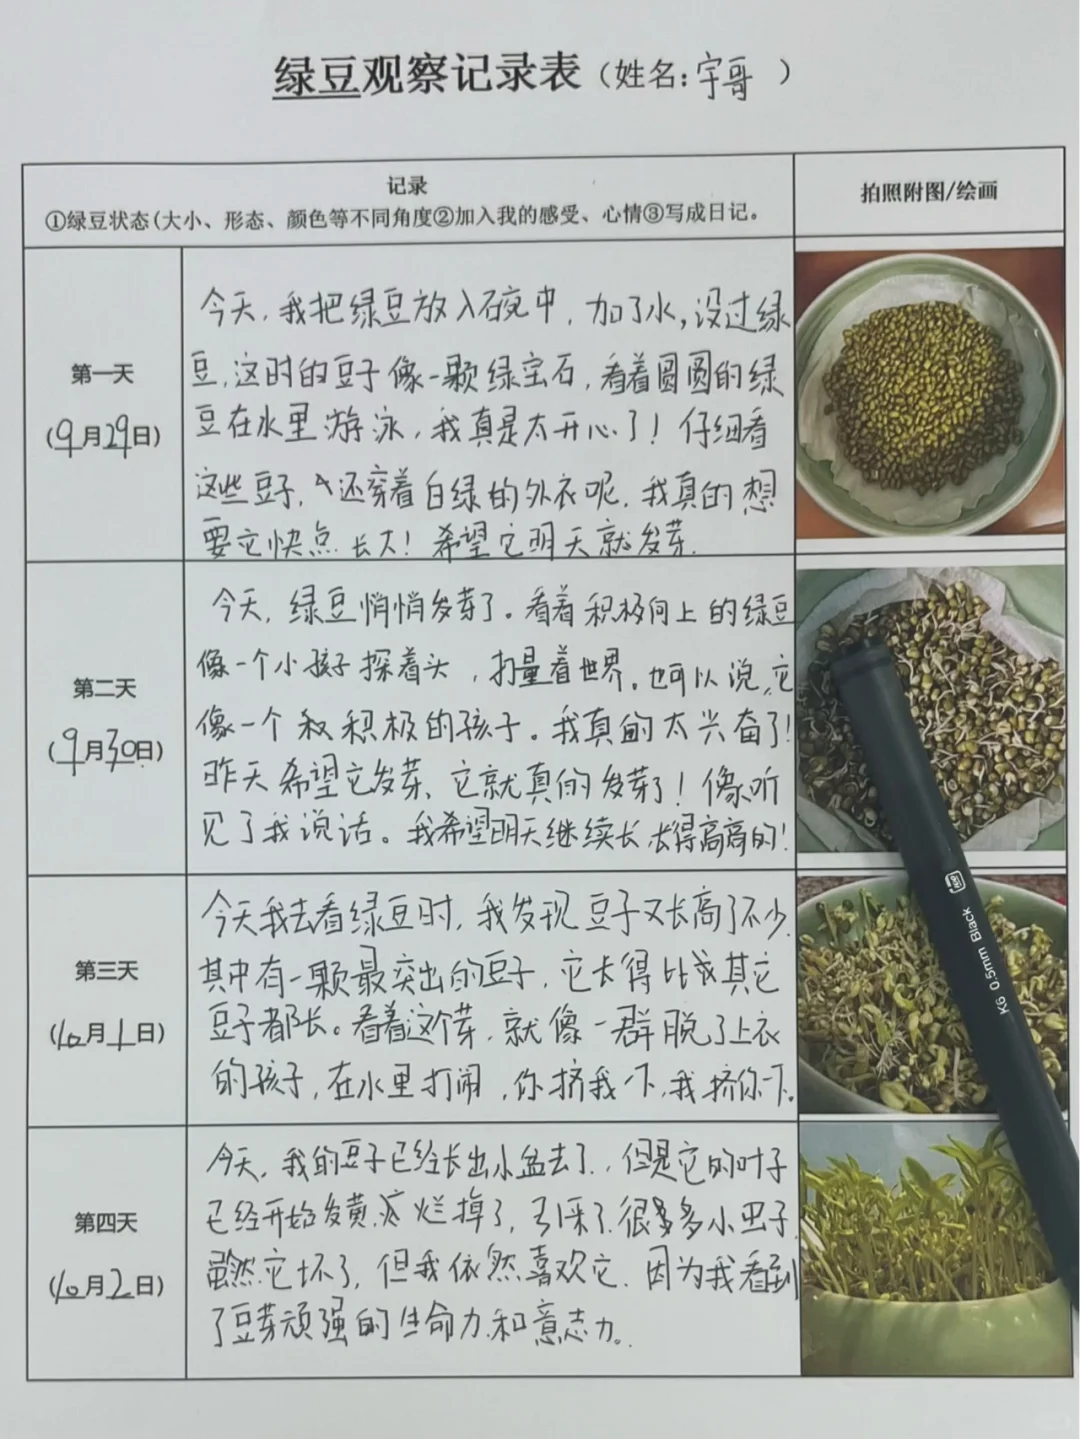 绿豆观察记录表（姓名：宇哥 ）
记录
①绿豆状态(大小、形态、颜色等不同角度②加入我的感受、心情③写成日记。
拍照附图/绘画
第一天
(9月29日)
今天，我把绿豆放入碗中，加了水，没过绿
豆，这时的豆子像一颗绿宝石，看着圆圆的绿
豆在水里游泳，我真是太开心了！仔细看
这些豆子，还穿着白绿的外衣呢，我真的想
要它快点长大！希望它明天就发芽.
第二天
(9月30日)
今天，绿豆悄悄发芽了。看着积极向上的绿豆
像一个小孩子探着头，打量着世界。也可以说，它
像一个积极的孩子。我真的太兴奋了！
昨天希望它发芽、它就真的发芽了！像听
见了我说话。我希望明天继续长，长得高高的！
第三天
(10月1日)
今天我去看绿豆时，我发现豆子又长高了不少.
其中有一颗最突出的豆子，它长得比其它
豆子都长。看着这个芽，就像一群脱了上衣
的孩子，在水里打闹，你挤我一下，我挤你一下。
第四天
(10月2日)
今天，我的豆子已经长出小盆去了，但是它的叶子
已经开始发黄，烂掉了，引来了很多多小虫子.
虽然它坏了，但我依然喜欢它. 因为我看到
了豆芽顽强的生命力和意志力。
K6 0.5mm Black